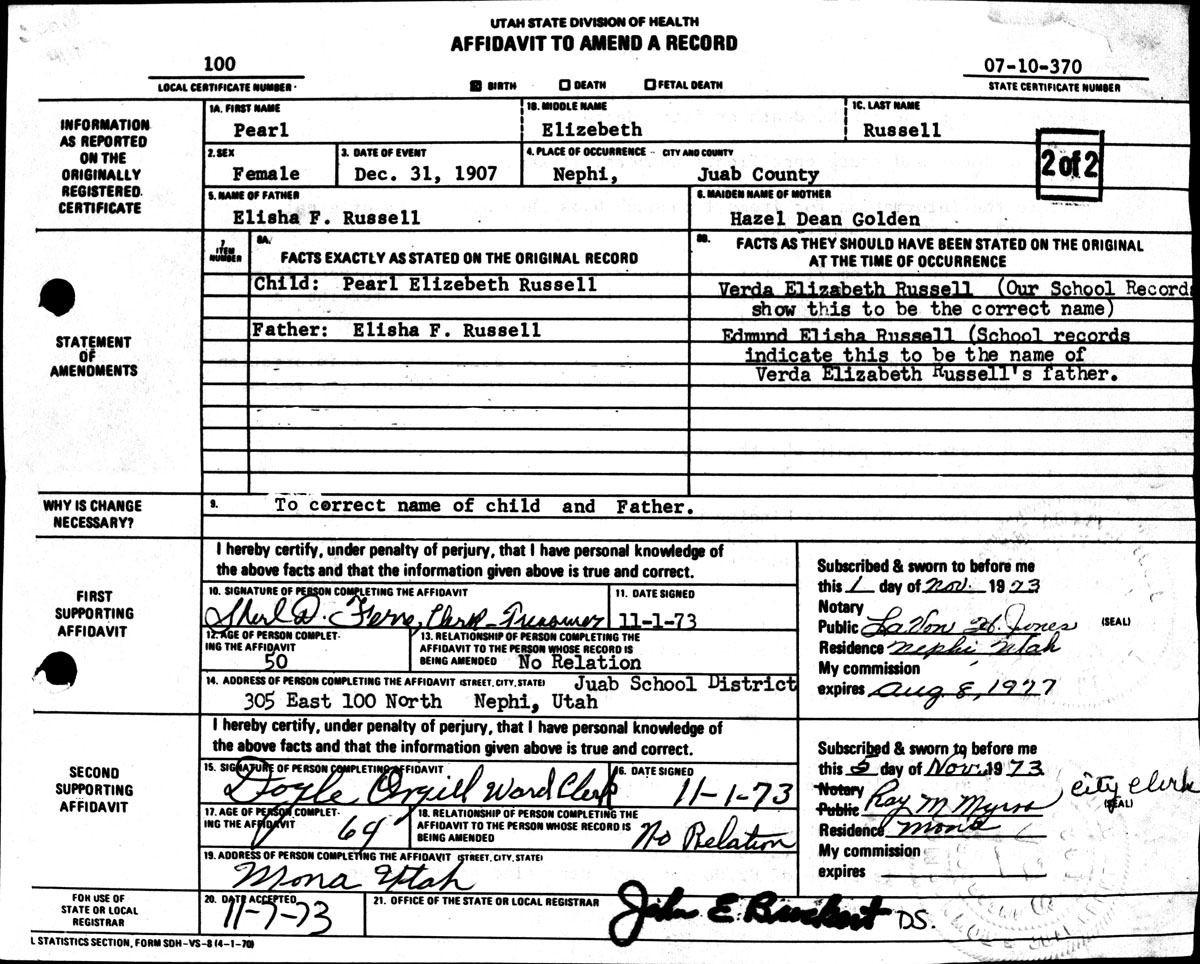 UTAH STATE DIVISION OF HEALTH
AFFIDAVIT TO AMEND A RECORD
100
LOCAL CERTIFICATE NUMBER
BIRTH DEATH FETAL DEATH
07-10-370
STATE CERTIFICATE NUMBER
INFORMATION
AS REPORTED
ON THE
ORIGINALLY
REGISTERED
CERTIFICATE
1A. FIRST NAME
Pearl
1B. MIDDLE NAME
Elizebeth
1C. LAST NAME
Russell
2. SEX
Female
3. DATE OF EVENT
Dec. 31, 1907
4. PLACE OF OCCURRENCE - CITY AND COUNTY
Nephi, Juab County
2 of 2
5. NAME OF FATHER
Elisha F. Russell
6. MAIDEN NAME OF MOTHER
Hazel Dean Golden
STATEMENT
OF
AMENDMENTS
7.
ITEM
NUMBER
8A.
FACTS EXACTLY AS STATED ON THE ORIGINAL RECORD
8B.
FACTS AS THEY SHOULD HAVE BEEN STATED ON THE ORIGINAL
AT THE TIME OF OCCURRENCE
Child: Pearl Elizebeth Russell
Verda Elizabeth Russell (Our School Record
show this to be the correct name)
Father: Elisha F. Russell
Edmund Elisha Russell (School records
indicate this to be the name of
Verda Elizabeth Russell's father.
WHY IS CHANGE
NECESSARY?
9. To correct name of child and Father.
FIRST
SUPPORTING
AFFIDAVIT
I hereby certify, under penalty of perjury, that I have personal knowledge of
the above facts and that the information given above is true and correct.
10. SIGNATURE OF PERSON COMPLETING THE AFFIDAVIT
Sherl D. Ferre, Clerk-Treasurer
11. DATE SIGNED
11-1-73
12. AGE OF PERSON COMPLET-
ING THE AFFIDAVIT
50
13. RELATIONSHIP OF PERSON COMPLETING THE
AFFIDAVIT TO THE PERSON WHOSE RECORD IS
BEING AMENDED No Relation
14. ADDRESS OF PERSON COMPLETING THE AFFIDAVIT (STREET, CITY, STATE) Juab School District
305 East 100 North Nephi, Utah
Subscribed & sworn to before me
this 1 day of Nov. 1973
Notary
Public LaVon H. Jones (SEAL)
Residence Nephi Utah
My commission
expires Aug 8, 1977
SECOND
SUPPORTING
AFFIDAVIT
I hereby certify, under penalty of perjury, that I have personal knowledge of
the above facts and that the information given above is true and correct.
15. SIGNATURE OF PERSON COMPLETING AFFIDAVIT
Doyle Orgill Ward Clerk
16. DATE SIGNED
11-1-73
17. AGE OF PERSON COMPLET-
ING THE AFFIDAVIT
64
18. RELATIONSHIP OF PERSON COMPLETING THE
AFFIDAVIT TO THE PERSON WHOSE RECORD IS
BEING AMENDED No Relation
19. ADDRESS OF PERSON COMPLETING THE AFFIDAVIT (STREET, CITY, STATE)
Mona Utah
Subscribed & sworn to before me
this 5 day of Nov. 1973
Notary
Public Ray M City Clerk
(SEAL)
Residence Mona
My commission
expires
FOR USE OF
STATE OR LOCAL
REGISTRAR
20. DATE ACCEPTED
11-7-73
21. OFFICE OF THE STATE OR LOCAL REGISTRAR
John E DS.
L STATISTICS SECTION, FORM SDH-VS-8 (4-1-70)